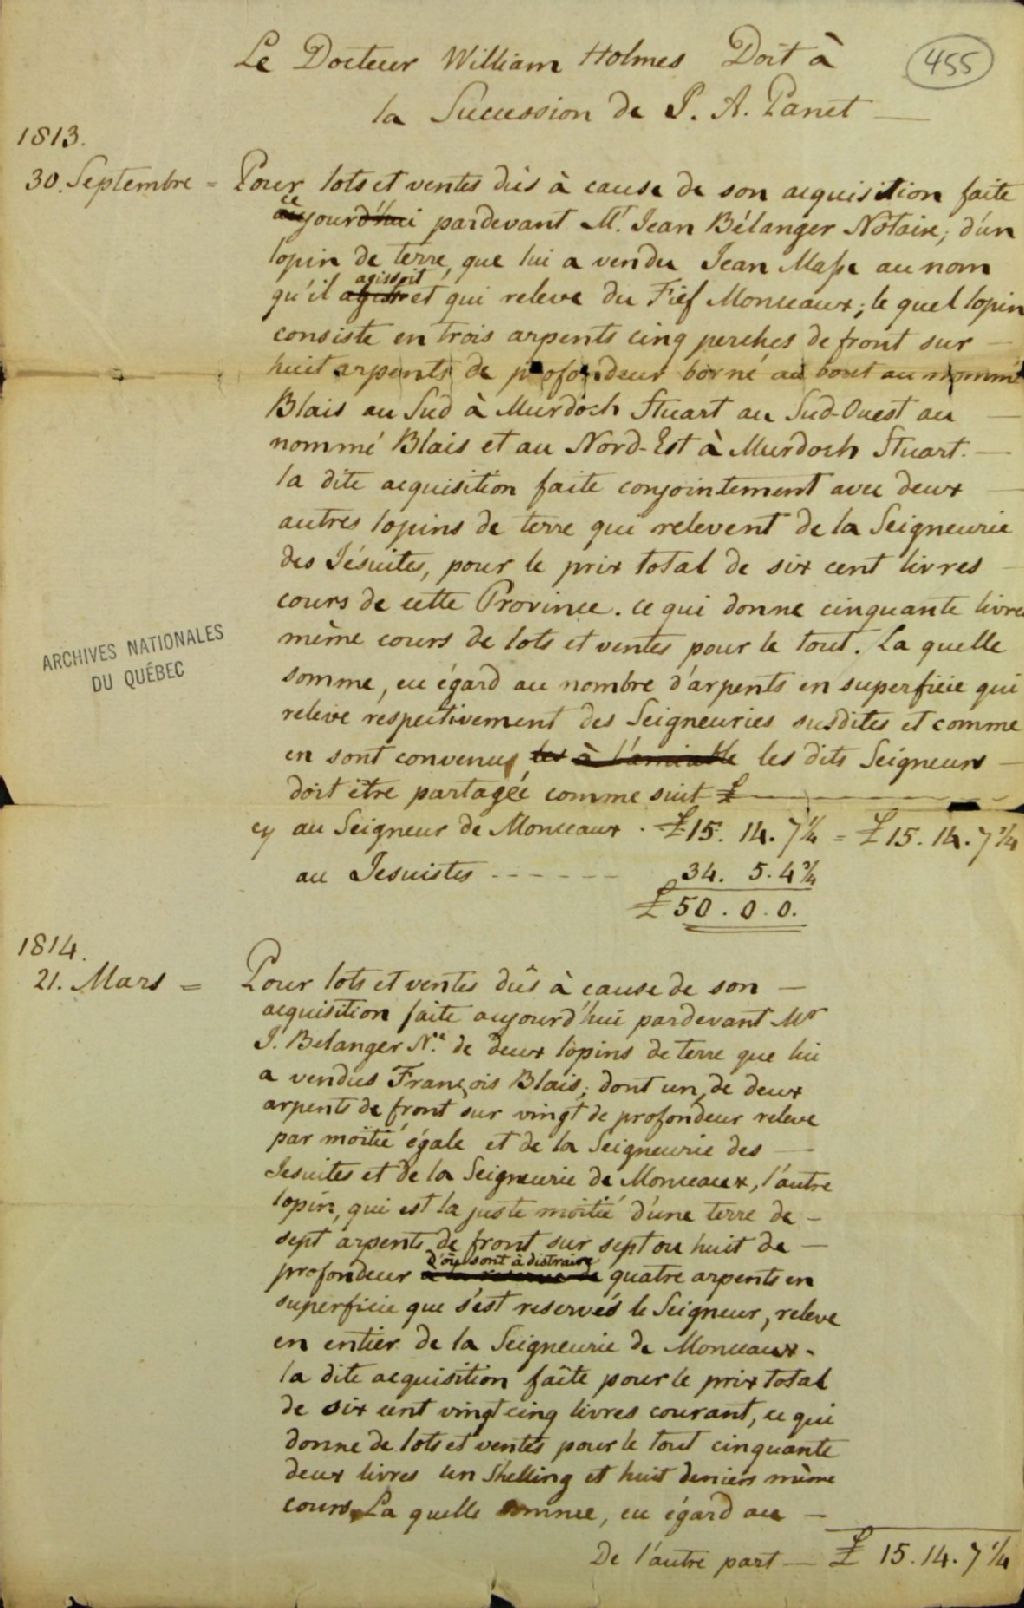 Le Docteur William Holmes Doit à
455
la Succession de P. A. Panet
1813.
30. Septembre = Pour lots et ventes dûs à cause de son acquisition faite
ce
aujourd'hui pardevant Mr. Jean Bélanger Notaire; d'un
lopin de terre, que lui a vendu Jean Masse au nom
agissoit
qu'il et qui releve du Fief Monceaux; le quel lopin
consiste en trois arpents cinq perches de front sur
huit arpents de profondeur borné au bout au nommé
Blais au Sud à Murdoch Stuart au Sud-Ouest au
nommé Blais et au Nord-Est à Murdoch Stuart.
la dite acquisition faite conjointement avec deux
autres lopins de terre qui relevent de la Seigneurie
des Jésuites, pour le prix total de six cent livres
cours de cette Province. ce qui donne cinquante livres
même cours de lots et ventes pour le tout. La quelle
ARCHIVES NATIONALES
DU QUÉBEC
somme, eu égard au nombre d'arpents en superficie qui
releve respectivement des Seigneuries susdites et comme
en sont convenus les à l'amiable les dits Seigneurs
doit être partagée comme suit £
cy au Seigneur de Monceaux . £15. 14. 7 1/4 = £15. 14. 7 1/4
au Jesuistes - - - - - - 34. 5. 4 3/4
£50. 0. 0.
1814.
21. Mars = Pour lots et ventes dûs à cause de son
acquisition faite aujourd'hui pardevant Mr
J. Belanger Nre. de deux lopins de terre que lui
a vendus François Blais; dont un, de deux
arpents de front sur vingt de profondeur releve
par moitié égale et de la Seigneurie des
Jesuites et de la Seigneurie de Monceaux, l'autre
lopin, qui est la juste moitié d'une terre de
sept arpents de front sur sept ou huit de
d'où sont à distraire
profondeur à la reserve de quatre arpents en
superficie que s'est reservés le Seigneur, releve
en entier de la Seigneurie de Monceaux.
la dite acquisition faîte pour le prix total
de six cent vingt cinq livres courant, ce qui
donne de lots et ventes pour le tout cinquante
deux livres un Shelling et huit deniers même
cours, La quelle somme, eu égard au
De l'autre part — £ 15. 14. 7 1/4